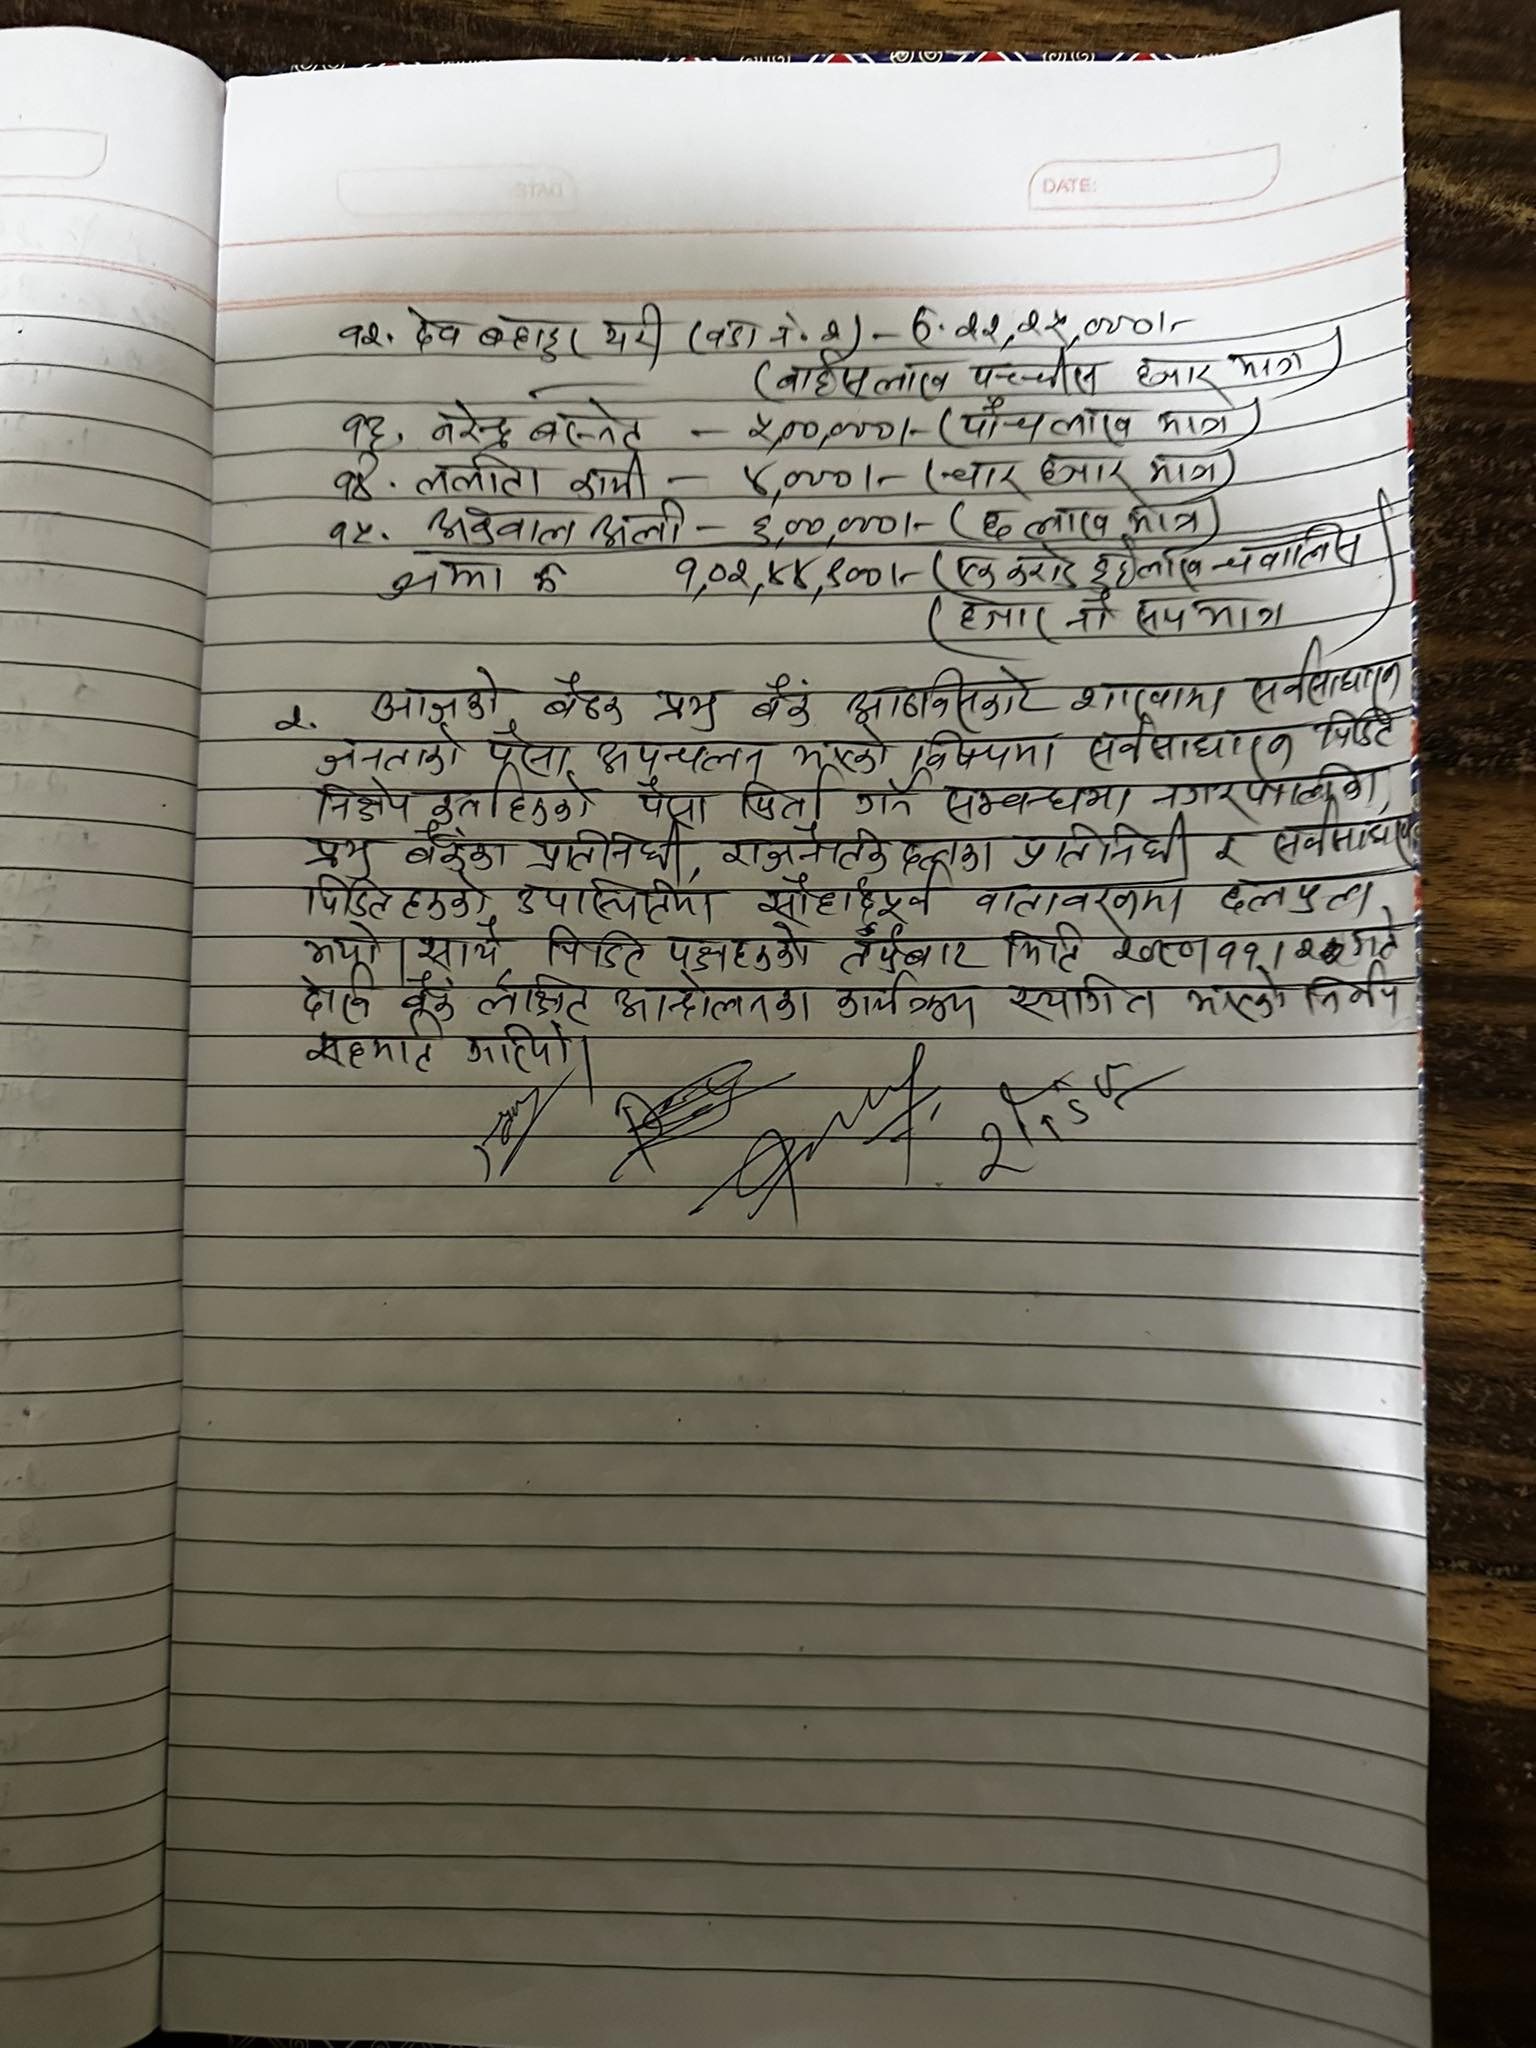 DATE:
१२. देव बहादुर घर्ती (वडा नं. २) – रु. २२,२५,०००।-
(बाईस लाख पच्चीस हजार मात्र)
१३. नरेन्द्र बस्नेत – ५,००,०००।- (पाँच लाख मात्र)
१४. ललीता कामी – ४,०००।- (चार हजार मात्र)
१५. अली – ६,००,०००।- (छ लाख मात्र)
जम्मा रु १,०२,४४,९००।- (एक करोड दुईलाख चवालिस
(हजार नौ सय मात्र
२. आजको बैठक प्रभु बैंक आठबिसकोट शाखामा सर्वसाधारण
जनताको पैसा अपचलन भएको विषयमा सर्वसाधारण पिडित
निक्षेप कर्ताहरुको पैसा फिर्ता गर्ने सम्बन्धमा नगरपालिका,
प्रभु बैंकका प्रतिनिधी, राजनैतिक दलका प्रतिनिधी र सर्वसाधारण
पिडितहरुको उपस्थितिमा सौहार्दपूर्ण वातावरणमा छलफल
भयो। साथै पिडित पक्षहरुको तर्फबाट मिति २०८०।११। गते
देखि बैंक लक्षित आन्दोलनका कार्यक्रम स्थगित भएको निर्णय
सहमति गरियो।